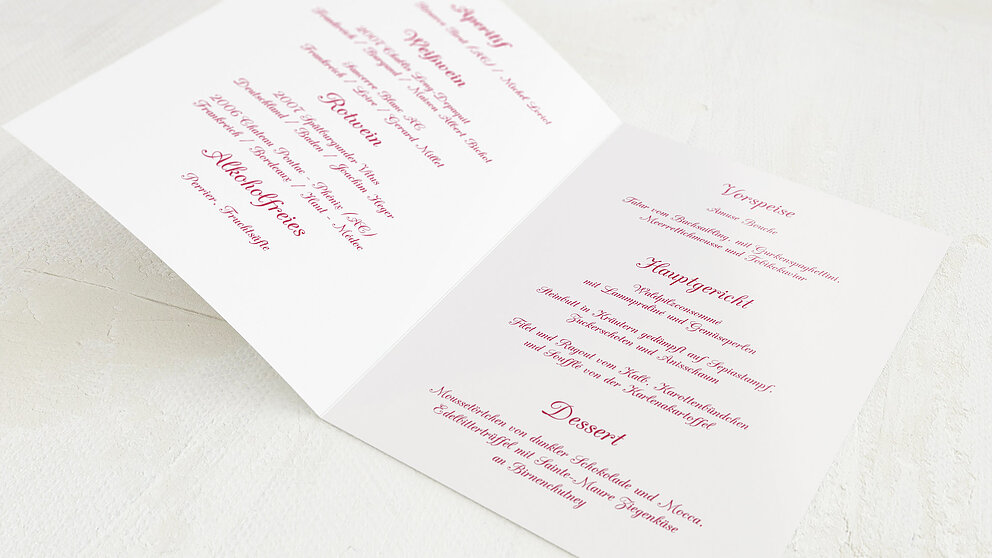 Aperitif
Réserve Brut (AC) / Michel Loriot
Weißwein
2007 Chablis Long Depaquit
Frankreich / Burgund / Maison Albert Bichot
Sancerre Blanc AC
Frankreich / Loire / Gerard Millet
Rotwein
2007 Spätburgunder Vitus
Deutschland / Baden / Joachim Heger
2006 Chateau Pontac - Phénix (AC)
Frankreich / Bordeaux / Haut - Médoc
Alkoholfreies
Perrier, Fruchtsäfte
Vorspeise
Amuse Bouche
Tatar vom Bachsaibling, mit Gurkenspaghettini,
Meerrettichmousse und Tobikokaviar
Hauptgericht
Waldpilzconsommé
mit Lammpraliné und Gemüseperlen
Steinbutt in Kräutern gedämpft auf Sepiastampf,
Zuckerschoten und Anisschaum
Filet und Ragout vom Kalb, Karottenbündchen
und Soufflé von der Harlenakartoffel
Dessert
Moussetörtchen von dunkler Schokolade und Mocca,
Edelbittertrüffel mit Sainte-Maure Ziegenkäse
an Birnenchutney